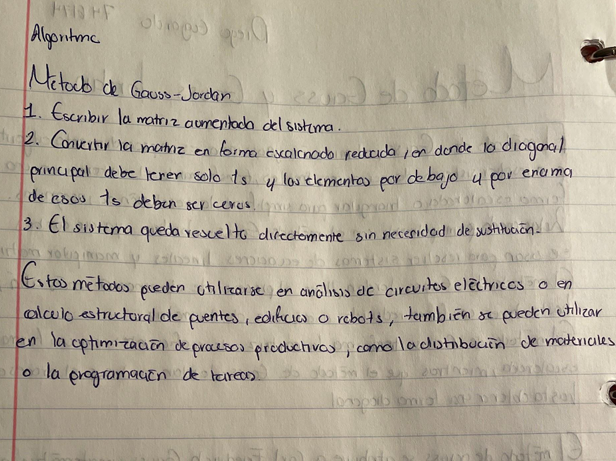 Algoritmo
Metodo de Gauss-Jordan
1. Escribir la matriz aumentada del sistema.
2. Convertir la matriz en forma escalonada reducida, en donde la diagonal
principal debe tener solo 1s y los elementos por debajo y por encima
de esos 1s deben ser ceros.
3. El sistema queda resuelto directamente sin necesidad de sustitución.
Estos métodos pueden utilizarse en análisis de circuitos eléctricos o en
calculo estructural de puentes, edificios o robots, también se pueden utilizar
en la optimización de procesos productivos, como la distribución de materiales
o la programación de tareas